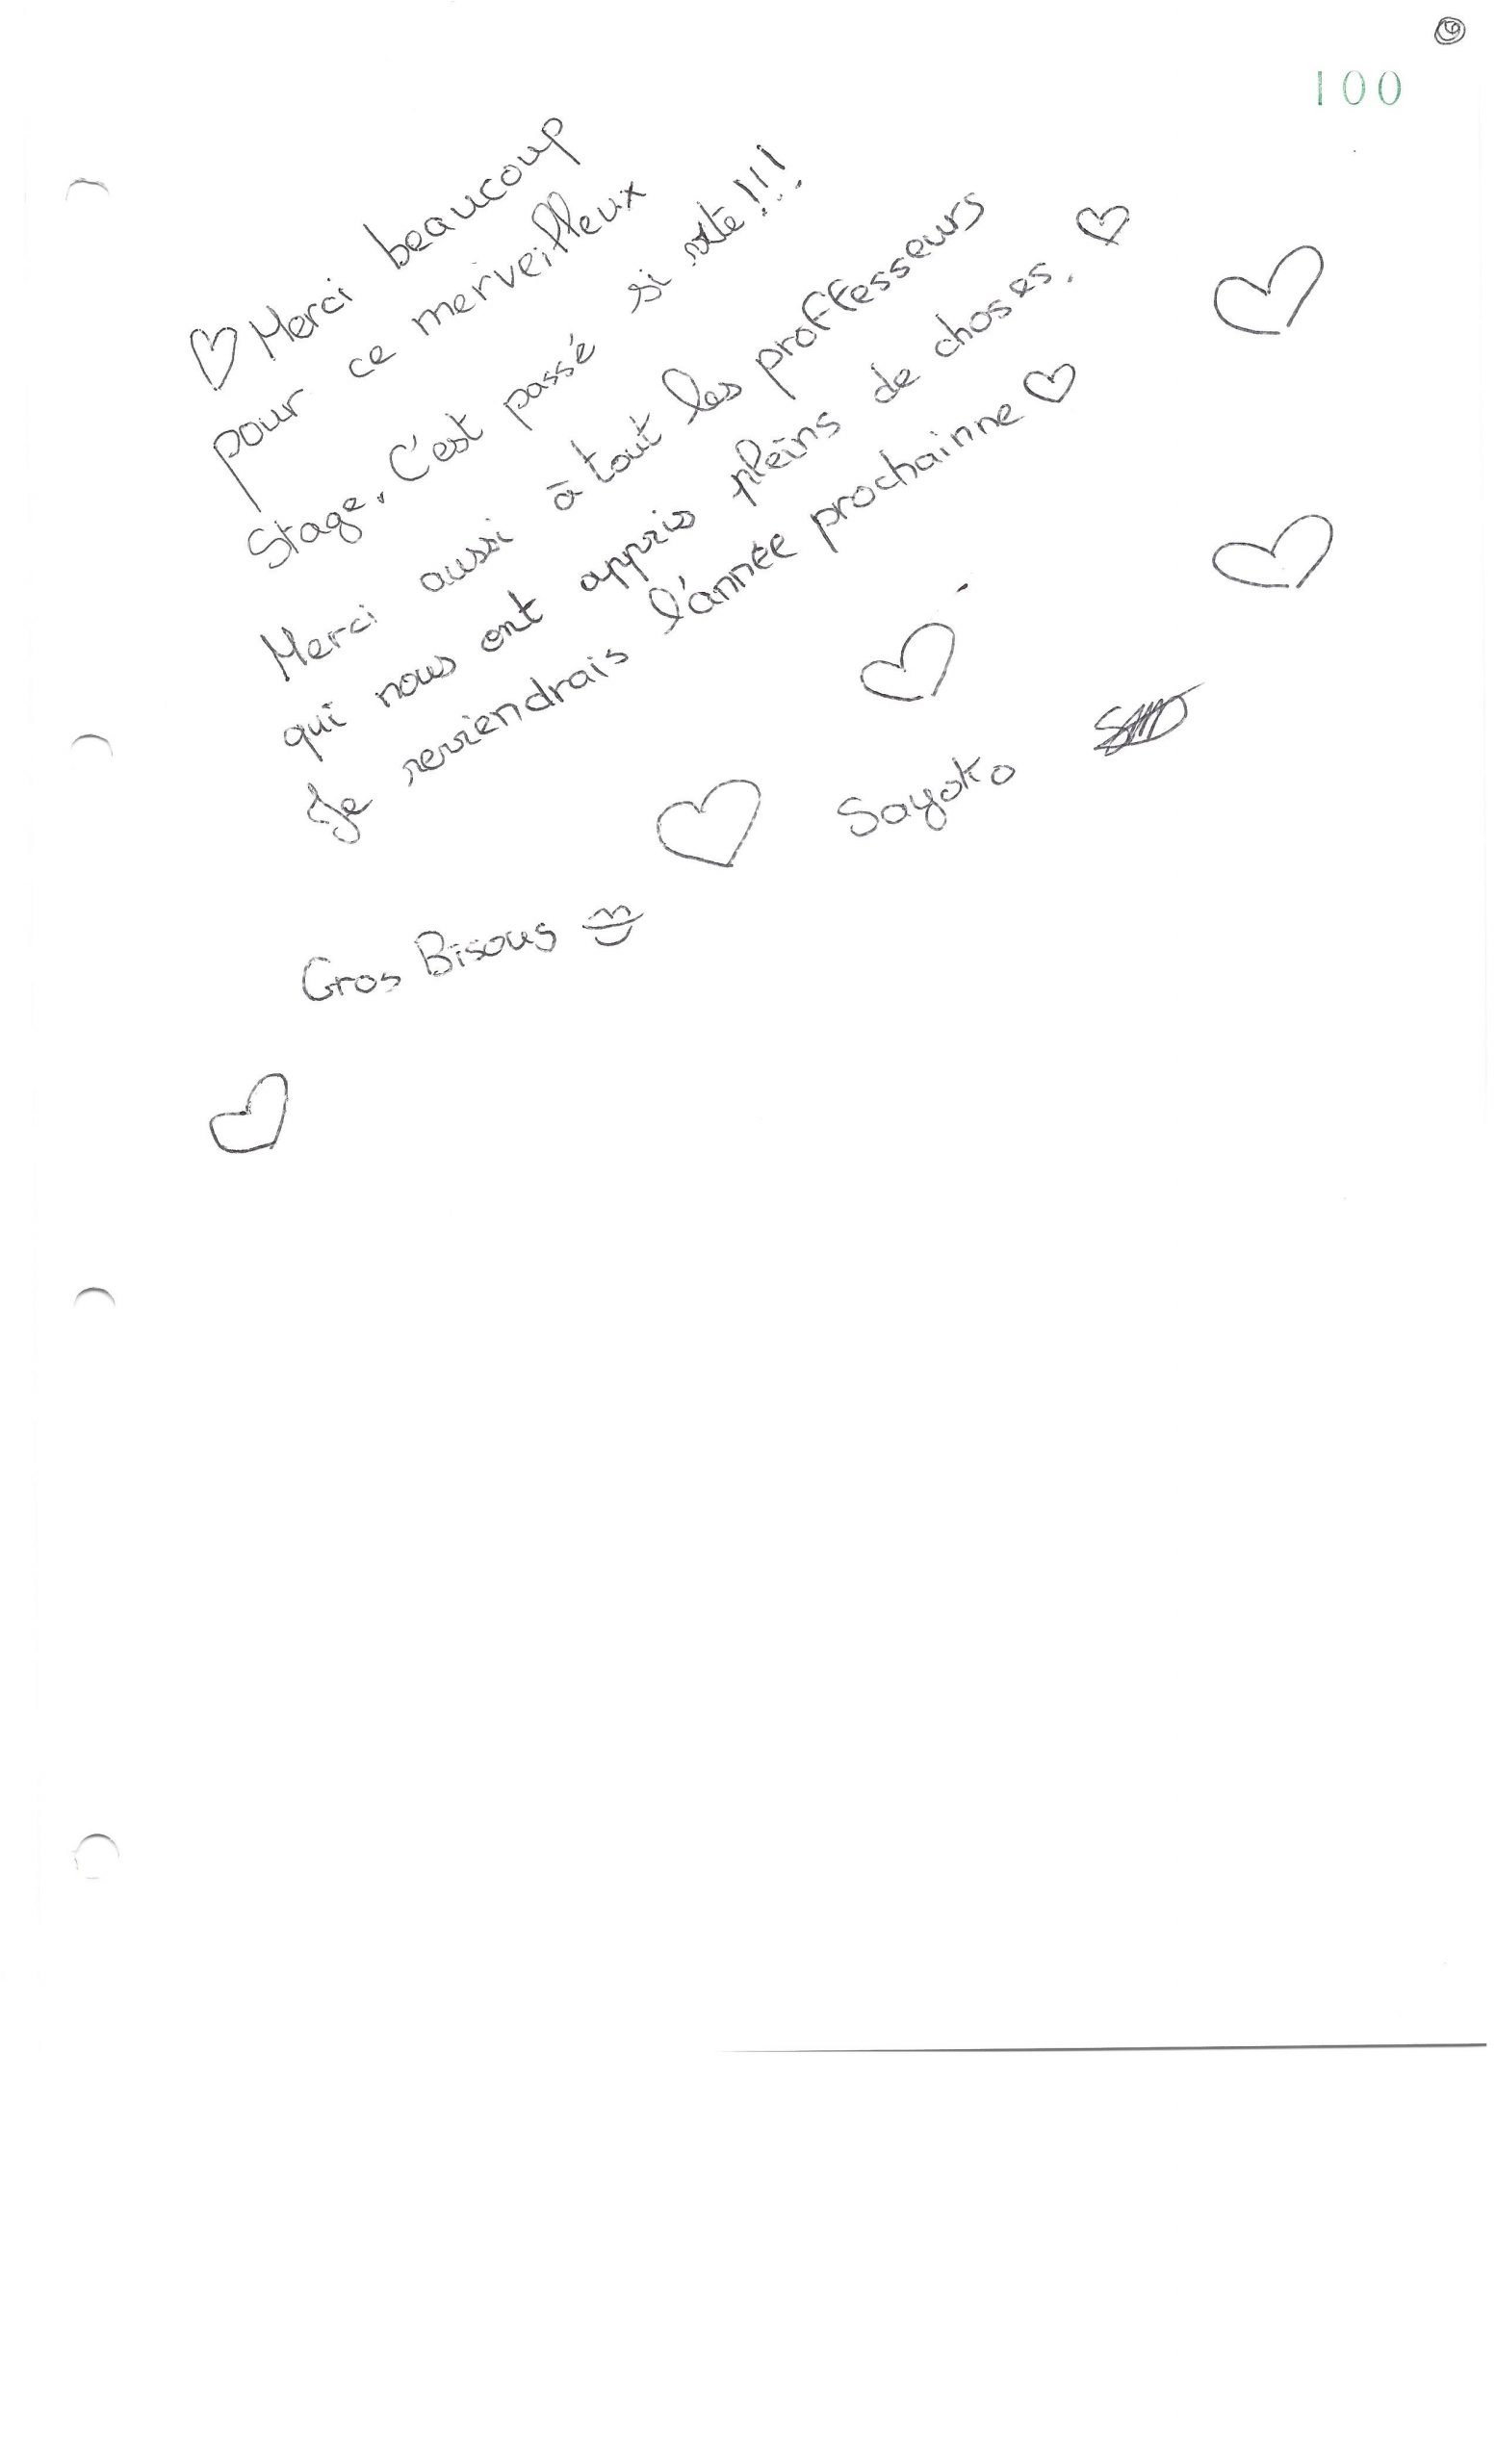 100
Merci beaucoup
pour ce merveilleux
Stage. C'est passé si vite!!!
Merci aussi à tout les proffesseurs
qui nous ont appris pleins de choses.
Je reviendrais l'année prochainne
Sayoko
Gros Bisous